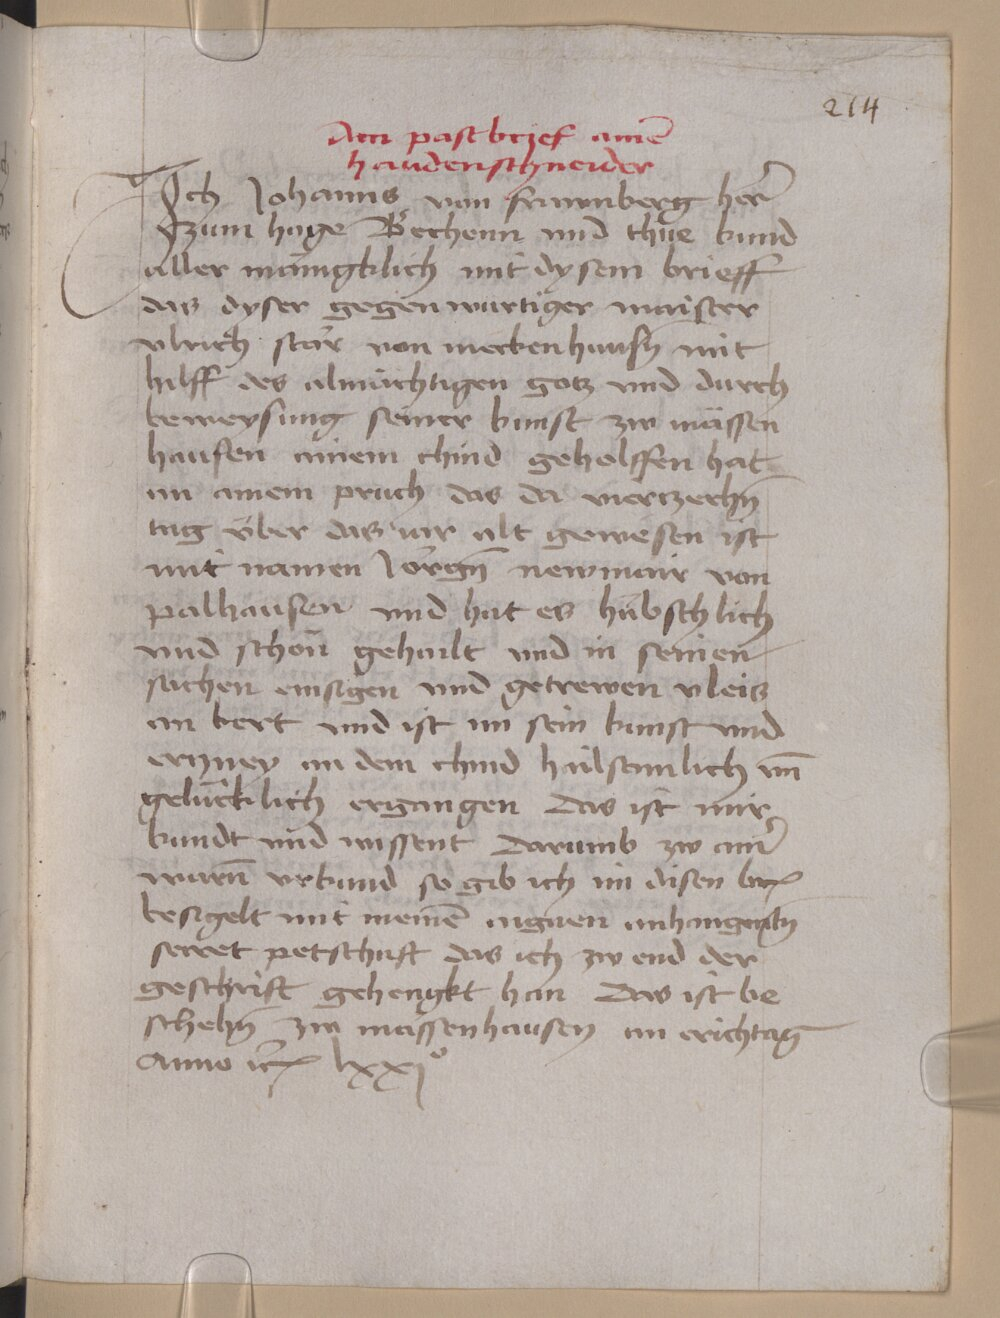 214
Ain pastbrief ainē
haudenschneider
Ich Johanns von frawnberg her
zum hage Bechenn und thue kund
aller mänigklich mit dysem brieff
das dyser gegenwurtiger maister
vlrich stär von meckenhausn mit
hilff des almächtigen gotz und durch
beweysung seiner kunst zw mässen
hausen ainem chind geholffen hat
an ainem pruch das da vierzechn
tag über das iar alt gewesen ist
mit namen Jörgn newmair von
palhausen und hat es hübschlich
und schon gehailt und in seinen
sachen emsigen und getrewen vleis
an kert und ist im sein kunst und
erzney an dem chind hailsamlich un̄
gelücklich ergangen Das ist mir
kundt und wissent Darumb zw ainer
warn̄ urkund so gib ich im disen br
besigelt mit meinē aignen anhangendn
secret petschaft das ich zw end der
geschrift gehengkt han Das ist be
schehn̄ zw massenhausen am erichtag
Anno ꝛc lxxjº